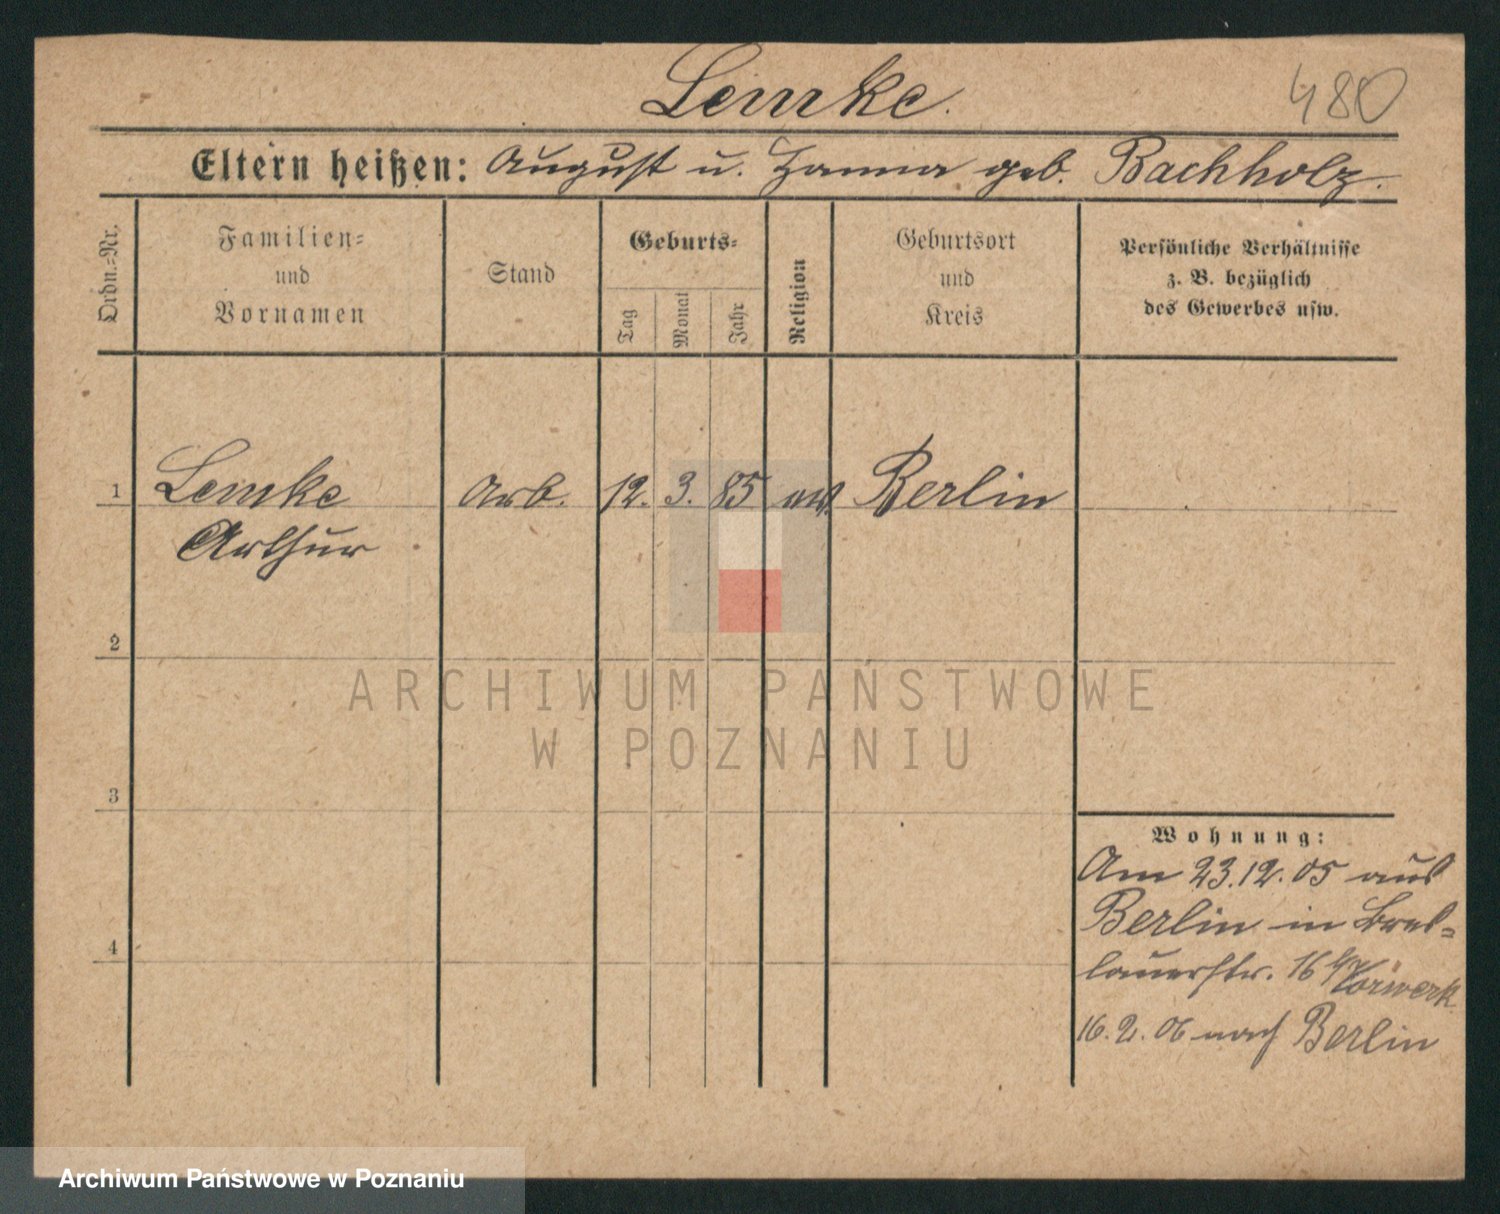 Lemke.
480
Eltern heißen: August u. Hanna geb. Bachholz.
Ordn.-Nr.
Familien-
und
Vornamen
Stand
Geburts-
Tag
Monat
Jahr
Religion
Geburtsort
und
Kreis
Persönliche Verhältnisse
z. B. bezüglich
des Gewerbes usw.
1 Lemke Arb. 12. 3. 85 ev. Berlin
Arthur
2
3
4
Wohnung:
Am 23.12.05 aus
Berlin in Bres-
lauerstr. 16 Vorwerk
16.2.06 nach Berlin
ARCHIWUM PAŃSTWOWE
W POZNANIU
Archiwum Państwowe w Poznaniu